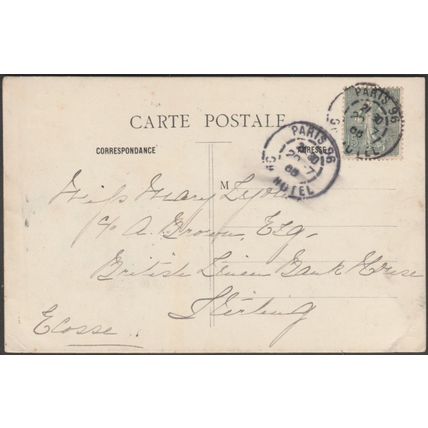 CARTE POSTALE
CORRESPONDANCE
ADRESSE
M
PARIS 96
HOTEL
PARIS 96
Miss Mary
c/o A. Brown, Esq.
British Linen Bank House
Stirling
Ecosse.